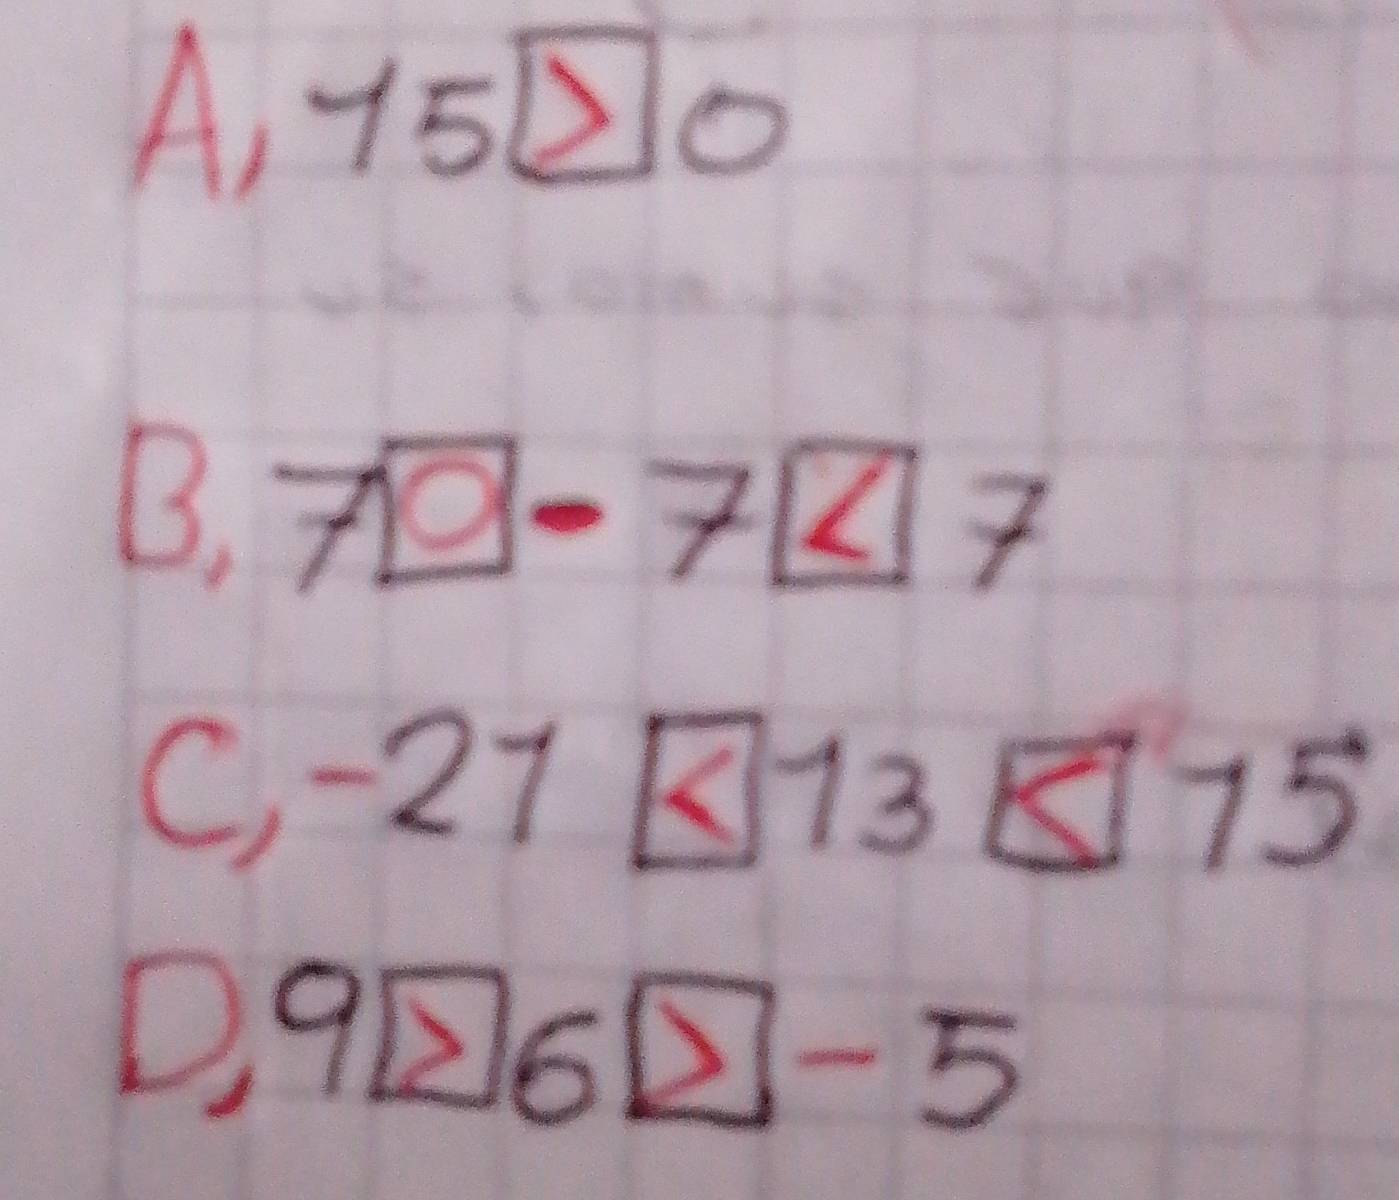 A, 15 > 0
B, 7 0 - 7 < 7
C, -21 < 13 < 15
D, 9 > 6 > - 5